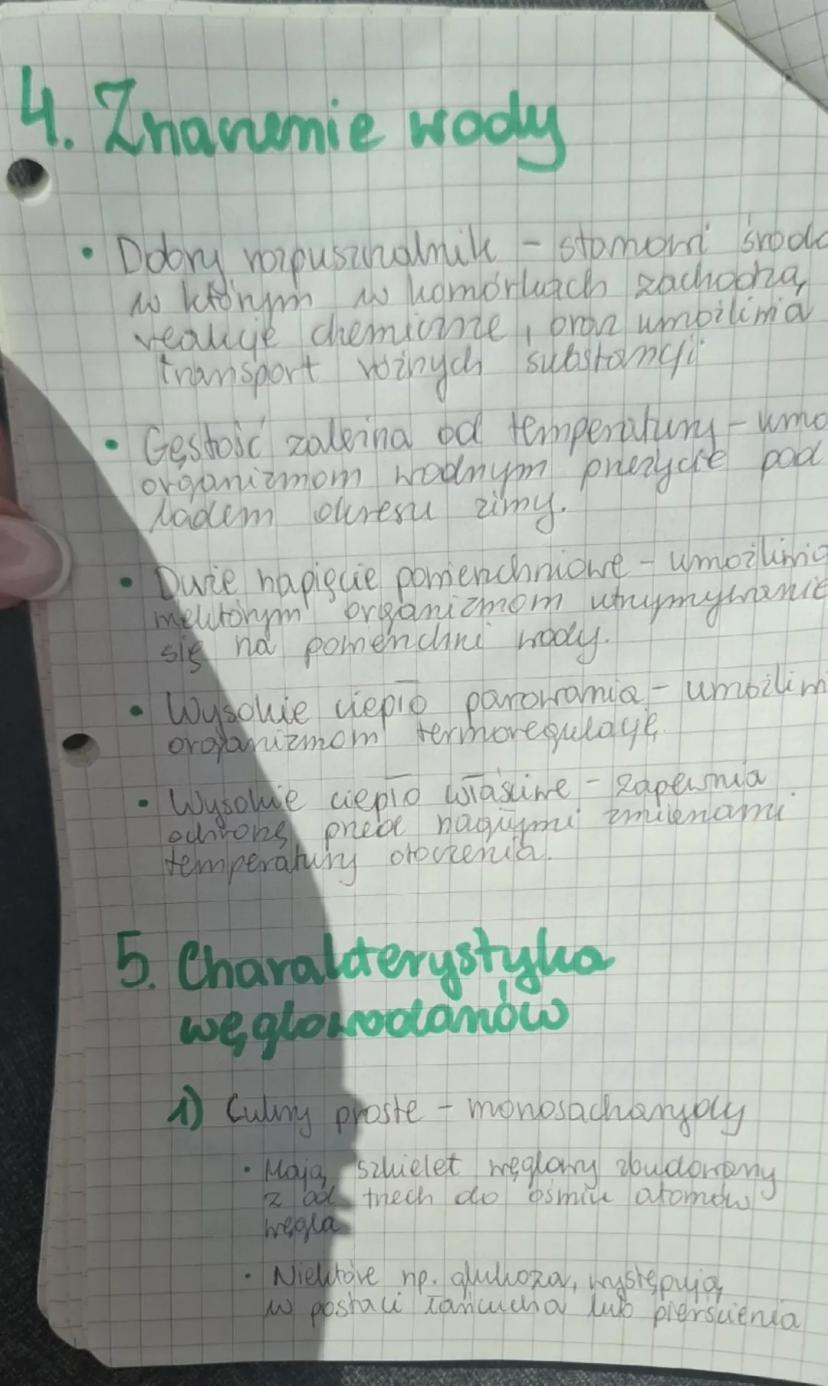 4. Znaczenie wody
• Dobry rozpuszczalnik - stanowi środo
w którym w komórkach zachodzą
reakcje chemiczne, oraz umożliwia
transport różnych substancji
• Gęstość zależna od temperatury - umo
organizmom wodnym przeżycie pod
lodem okresu zimy.
• Duże napięcie powierzchniowe - umożliwia
niektórym organizmom utrzymywanie
się na powierzchni wody.
• Wysokie ciepło parowania - umożliwi
organizmom termoregulację
• Wysokie ciepło właściwe - zapewnia
ochronę przed nagłymi zmianami
temperatury otoczenia.
5. Charakterystyka
węglowodanów
1) Cukry proste - monosacharydy
• Mają szkielet węglowy zbudowany
z od trzech do ośmiu atomów
węgla
• Niektóre np. glukoza, występują
w postaci łańcucha lub pierścienia